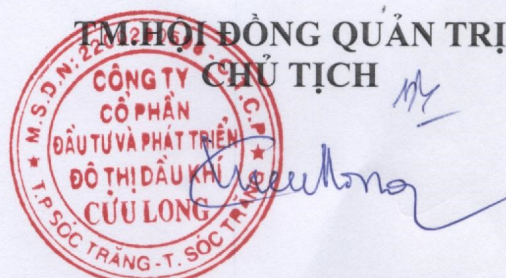 TM.HỘI ĐỒNG QUẢN TRỊ
CHỦ TỊCH
CÔNG TY
CỔ PHẦN
ĐẦU TƯ VÀ PHÁT TRIỂN
ĐÔ THỊ DẦU KHÍ
CỬU LONG
M.S.D.N:
C.P
T.P SÓC TRĂNG - T. SÓC TRĂNG